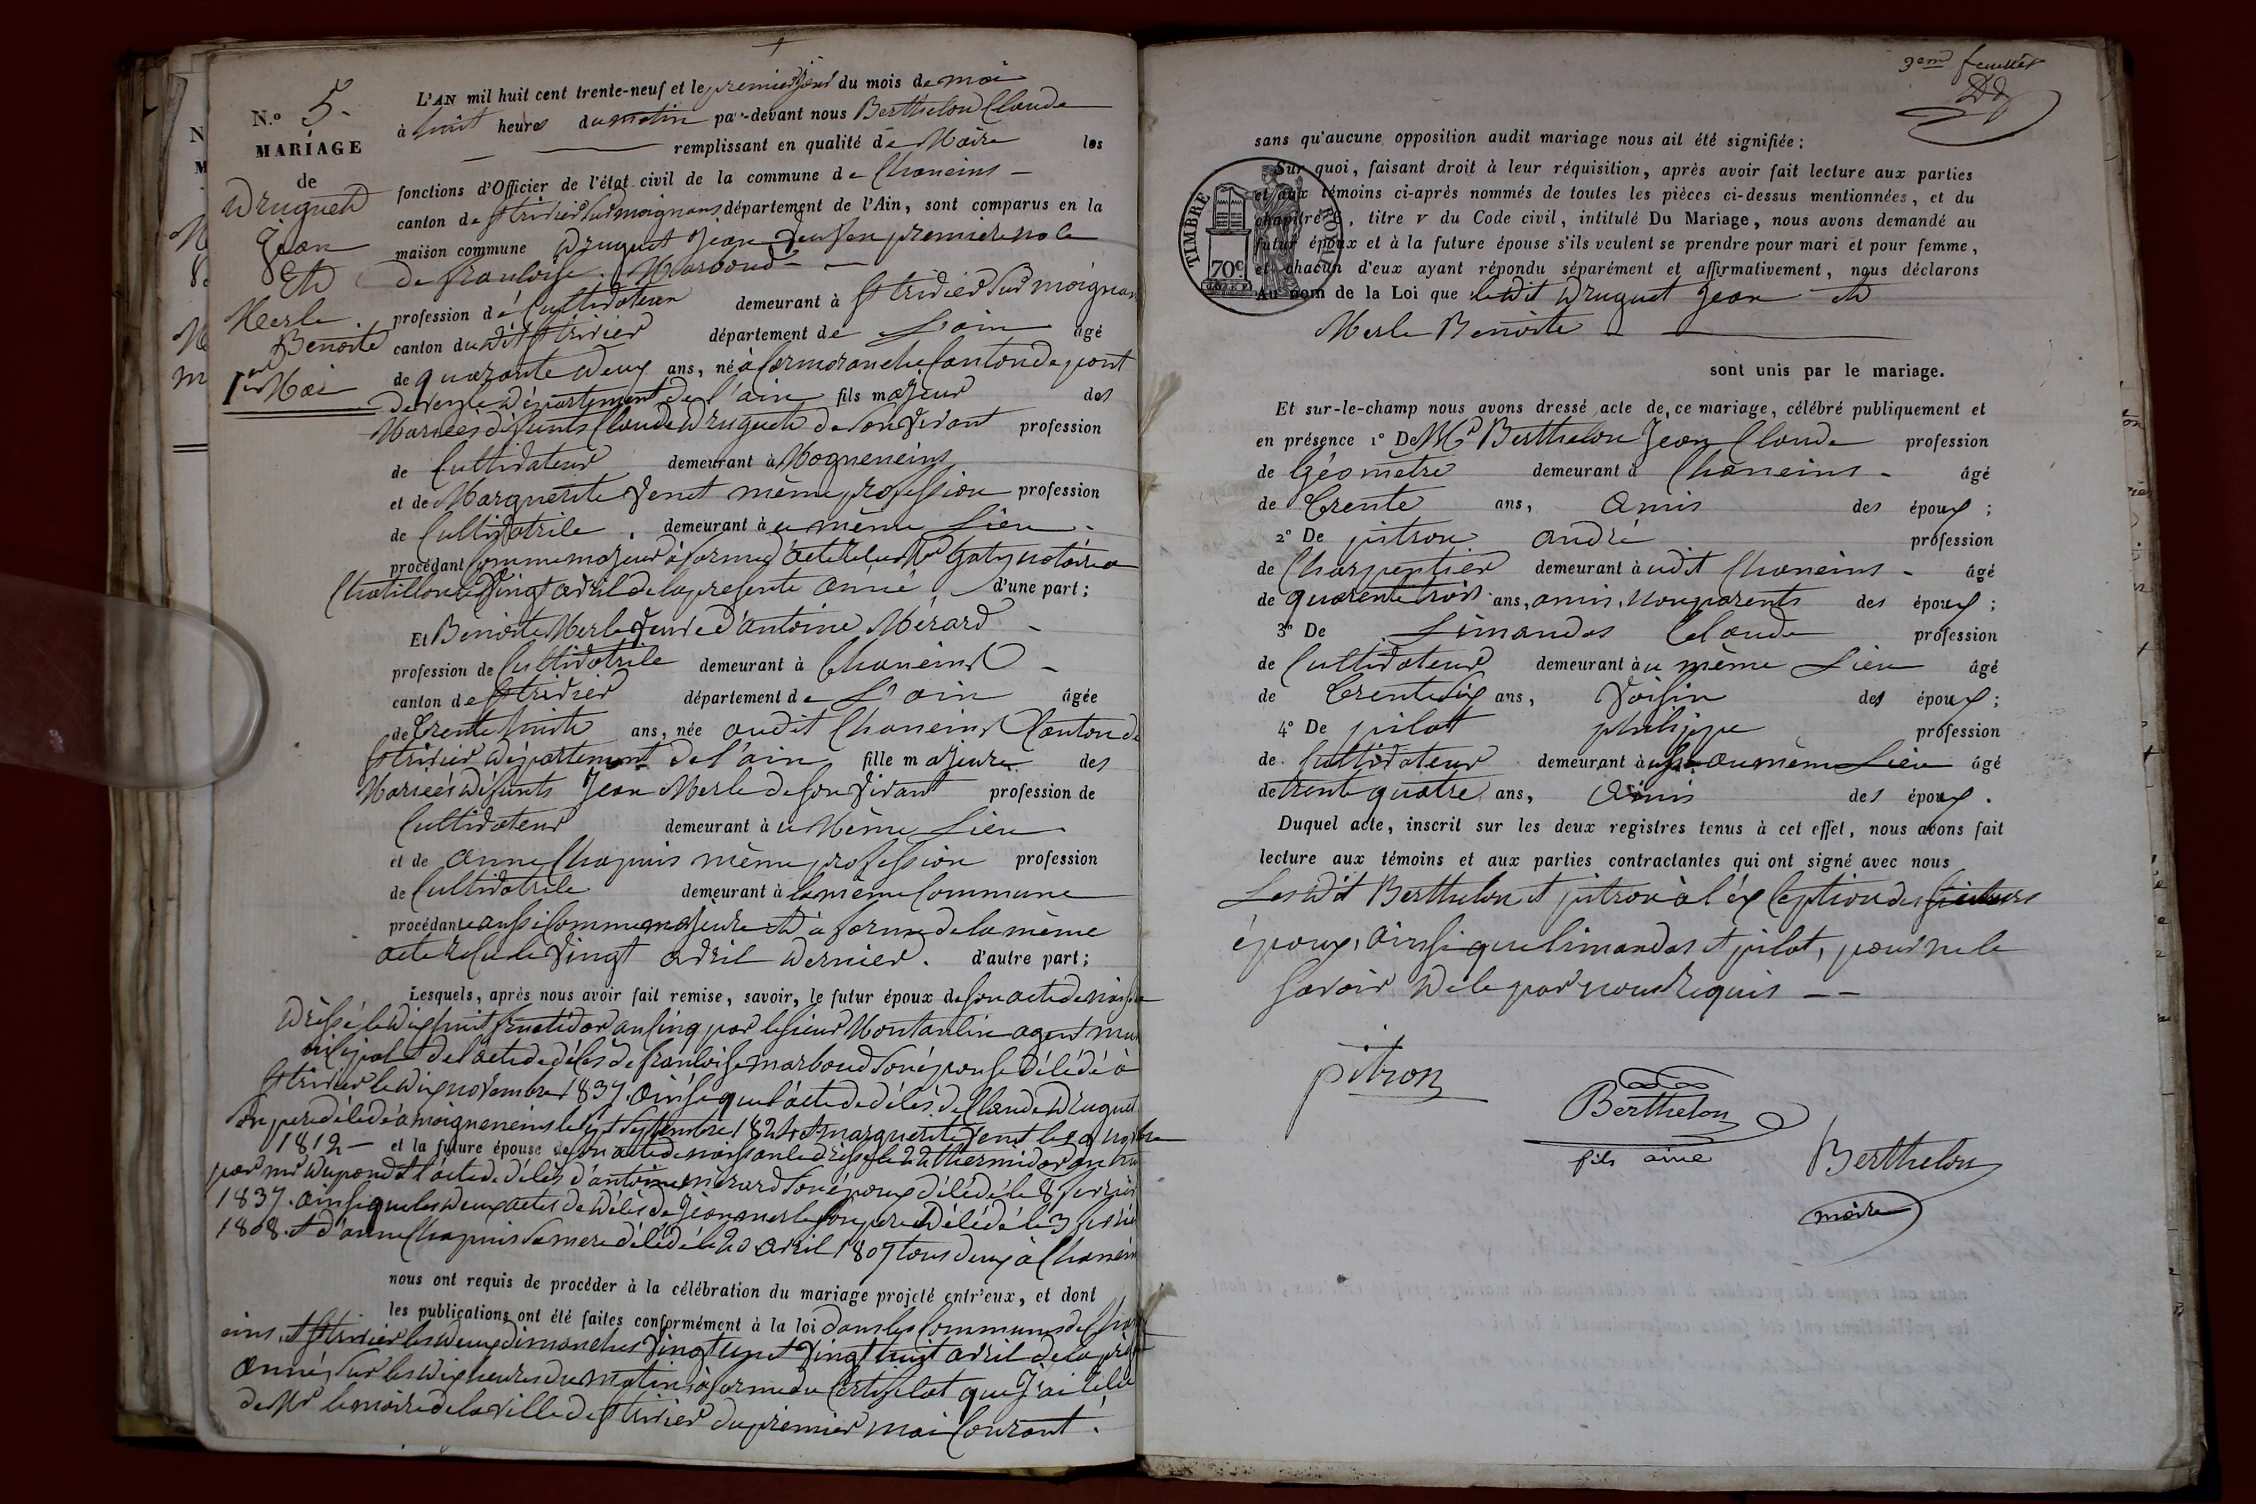 N.º 5.
MARIAGE
de
Druguet
Jean
Et
Merle
Benoite
1er Mai
L'AN mil huit cent trente-neuf et le premier jour du mois de mai
à huit heures du matin par-devant nous Berthelon Claude
remplissant en qualité de Maire les
fonctions d'Officier de l'état civil de la commune de Chaneins
canton de St trivier Sur moignans département de l'Ain, sont comparus en la
maison commune Druguet Jean veuf en première noce
de francoise Marboud
profession de Cultivateur demeurant à St trivier Sur moignans
canton dudit St trivier département de L'ain âgé
de quarante deux ans, né à Cormoranche Canton de pont
de veyle Département de l'ain fils majeur des
Mariées défunts Claude Druguet de Son vivant profession
de Cultivateur demeurant à Mogneneins
et de Marguerite Venet même profession profession
de Cultivatrice demeurant à u même Lieu
procédant Comme majeur à forme d'acte reçu Mr Gaty notaire a
Chatillon le Vingt avril de la presente année d'une part;
Et Benoite Merle veuve d'antoine Mérard
profession de Cultivatrice demeurant à Chaneins
canton de St trivier département de L'ain âgée
de trente huit ans, née audit Chaneins Canton de
St trivier Département de l'ain fille majeure des
Mariées Défunts Jean Merle de Son vivant profession de
Cultivateur demeurant à u Même Lieu
et de anne Chapuis même profession profession
de Cultivatrice demeurant à la même Commune
procédante aussi Comme majeure et à forme de la même
acte reçu le vingt avril dernier. d'autre part;
Lesquels, après nous avoir fait remise, savoir, le futur époux de Son acte de naissance
Dressé le Dix huit fructidor an Cinq par le Sieur Montaulin agent mu
nicipal et de l'acte de décès de francoise marboud Son épouse décédée à
St trivier le Dix novembre 1837. ainsi que l'acte de décès de Claude Druguet
Son pere décédé a moigneneins le Sept Septembre 1824 et marguerite venet le
1812 — et la future épouse de Son acte de naissance dressé le 22 thermidor an huit
par mr Dupond et l'acte de décès d'antoine mérard Son époux décédé le 8 fevrier
1837. ainsi que les deux actes de décès de Jean merle Son pere décédé le 3 fevrier
1808. et d'anne Chapuis Sa mere décédée le 20 avril 1807 tous deux à Chaneins
nous ont requis de procéder à la célébration du mariage projeté entr'eux, et dont
les publications ont été faites conformément à la loi dans les Communes de Chan
eins et St trivier les deux dimanches vingt un et vingt huit avril de la présente
année, Sur les Dix heures du Matin à forme du Certificat que J'ai
de Mr le maire de la ville de St trivier du premier mai Courant.
3em feuillet
sans qu'aucune opposition audit mariage nous ait été signifiée;
TIMBRE ROYAL
70c
Sur quoi, faisant droit à leur réquisition, après avoir fait lecture aux parties
et aux témoins ci-après nommés de toutes les pièces ci-dessus mentionnées, et du
chapitre 6, titre v du Code civil, intitulé Du Mariage, nous avons demandé au
futur époux et à la future épouse s'ils veulent se prendre pour mari et pour femme,
et chacun d'eux ayant répondu séparément et affirmativement, nous déclarons
Au nom de la Loi que ledit Druguet Jean et
Merle Benoite
sont unis par le mariage.
Et sur-le-champ nous avons dressé acte de ce mariage, célébré publiquement et
en présence 1º De Mr Berthelon Jean Claude profession
de Géometre demeurant à Chaneins âgé
de trente ans, amis des époux;
2º De pitron andré profession
de Charpentier demeurant à udit Chaneins âgé
de quarente trois ans, amis, non parents des époux;
3º De Limandas Claude profession
de Cultivateur demeurant à u même Lieu âgé
de trente Six ans, voisin des époux;
4º De pilot philippe profession
de Cultivateur demeurant à ussi au même Lieu âgé
de trente quatre ans, amis des époux.
Duquel acte, inscrit sur les deux registres tenus à cet effet, nous avons fait
lecture aux témoins et aux parties contractantes qui ont signé avec nous
Les dit Berthelon et pitron à l'exception des
époux, ainsi que limandas et pilot, pour ne le
Savoir De le par nous requis
pitron
Berthelon
fils ainé
Berthelon
maire